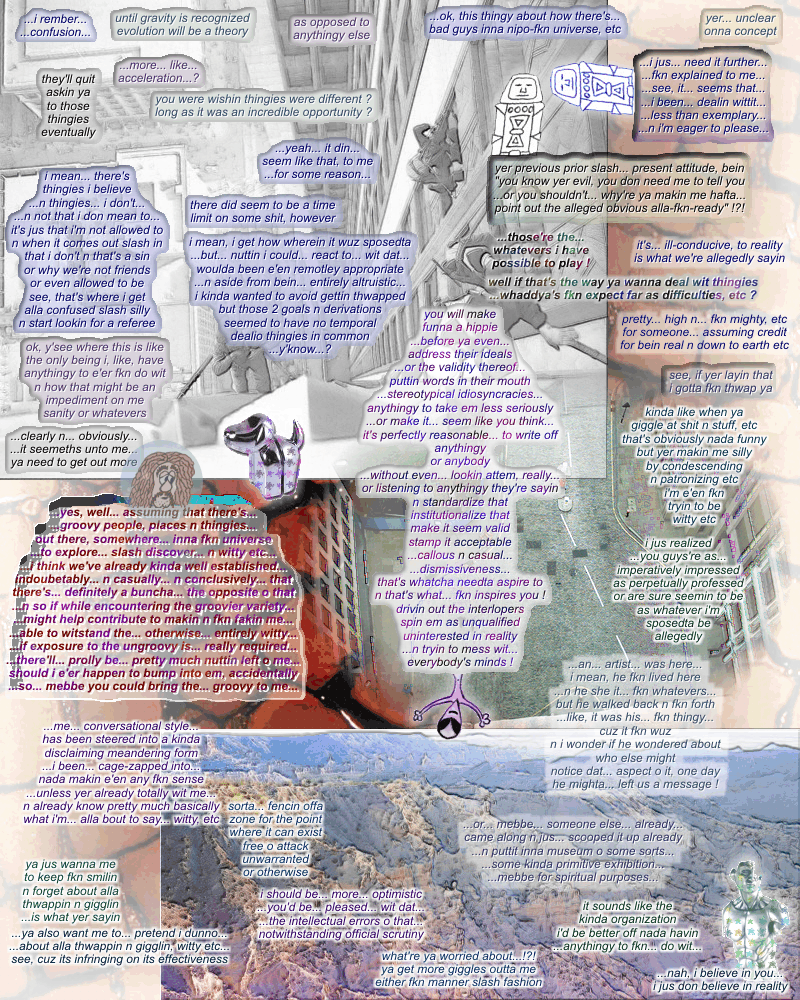 ...i rember...
...confusion...
until gravity is recognized
evolution will be a theory
as opposed to
anythingy else
...ok, this thingy about how there's...
bad guys inna nipo-fkn universe, etc
yer... unclear
onna concept
...more... like...
acceleration...?
they'll quit
askin ya
to those
thingies
eventually
you were wishin thingies were different ?
long as it was an incredible opportunity ?
...i jus... need it further...
...fkn explained to me...
...see, it... seems that...
...i been... dealin wittit...
...less than exemplary...
...n i'm eager to please...
...yeah... it din...
seem like that, to me
...for some reason...
yer previous prior slash... present attitude, bein
"you know yer evil, you don need me to tell you
...or you shouldn't... why're ya makin me hafta...
point out the alleged obvious alla-fkn-ready" !?!
i mean... there's
thingies i believe
...n thingies... i don't...
...n not that i don mean to...
it's jus that i'm not allowed to
n when it comes out slash in
that i don't n that's a sin
or why we're not friends
or even allowed to be
see, that's where i get
alla confused slash silly
n start lookin for a referee
there did seem to be a time
limit on some shit, however
i mean, i get how wherein it wuz sposedta
...but... nuttin i could... react to... wit dat...
woulda been e'en remotley appropriate
...n aside from bein... entirely altruistic...
i kinda wanted to avoid gettin thwapped
but those 2 goals n derivations
seemed to have no temporal
dealio thingies in common
...y'know...?
...those're the...
whatevers i have
possible to play !
it's... ill-conducive, to reality
is what we're allegedly sayin
well if that's the way ya wanna deal wit thingies
...whaddya's fkn expect far as difficulties, etc ?
pretty... high n... fkn mighty, etc
for someone... assuming credit
for bein real n down to earth etc
you will make
funna a hippie
...before ya even...
address their ideals
...or the validity thereof...
puttin words in their mouth
...stereotypical idiosyncracies...
anythingy to take em less seriously
...or make it... seem like you think...
it's perfectly reasonable... to write off
anythingy
or anybody
...without even... lookin attem, really...
or listening to anythingy they're sayin
n standardize that
institutionalize that
make it seem valid
stamp it acceptable
...callous n casual...
...dismissiveness...
that's whatcha needta aspire to
n that's what... fkn inspires you !
drivin out the interlopers
spin em as unqualified
uninterested in reality
...n tryin to mess wit...
everybody's minds !
ok, y'see where this is like
the only being i, like, have
anythingy to e'er fkn do wit
n how that might be an
impediment on me
sanity or whatevers
see, if yer layin that
i gotta fkn thwap ya
kinda like when ya
giggle at shit n stuff, etc
that's obviously nada funny
but yer makin me silly
by condescending
n patronizing etc
i'm e'en fkn
tryin to be
witty etc
...clearly n... obviously...
...it seemeths unto me...
ya need to get out more
yes, well... assuming that there's...
groovy people, places n thingies...
out there, somewhere... inna fkn universe
to explore... slash discover... n witty etc...
i think we've already kinda well established...
indoubetably... n casually... n conclusively... that
there's... definitely a buncha... the opposite o that
...n so if while encountering the groovier variety...
...might help contribute to makin n fkn fakin me...
able to witstand the... otherwise... entirely witty...
if exposure to the ungroovy is... really required...
...there'll... prolly be... pretty much nuttin left o me...
should i e'er happen to bump into em, accidentally
...so... mebbe you could bring the... groovy to me...
i jus realized
...you guys're as...
imperatively impressed
as perpetually professed
or are sure seemin to be
as whatever i'm
sposedta be
allegedly
...an... artist... was here...
i mean, he fkn lived here
...n he she it... fkn whatevers...
but he walked back n fkn forth
...like, it was his... fkn thingy...
cuz it fkn wuz
n i wonder if he wondered about
who else might
notice dat... aspect o it, one day
he mighta... left us a message !
...me... conversational style...
has been steered into a kinda
disclaiming meandering form
...i been... cage-zapped into...
nada makin e'en any fkn sense
...unless yer already totally wit me...
n already know pretty much basically
what i'm... alla bout to say... witty, etc
sorta... fencin offa
zone for the point
where it can exist
free o attack
unwarranted
or otherwise
...or... mebbe... someone else... already...
came along n jus... scooped it up already
...n puttit inna museum o some sorts...
...some kinda primitive exhibition...
...mebbe for spiritual purposes...
ya jus wanna me
to keep fkn smilin
n forget about alla
thwappin n gigglin
...is what yer sayin
i should be... more... optimistic
...you'd be... pleased... wit dat...
...the intellectual errors o that...
notwithstanding official scrutiny
it sounds like the
kinda organization
i'd be better off nada havin
...anythingy to fkn... do wit...
...ya also want me to... pretend i dunno...
...about alla thwappin n gigglin, witty etc...
see, cuz its infringing on its effectiveness
what're ya worried about...!?!
ya get more giggles outta me
either fkn manner slash fashion
...nah, i believe in you...
i jus don believe in reality